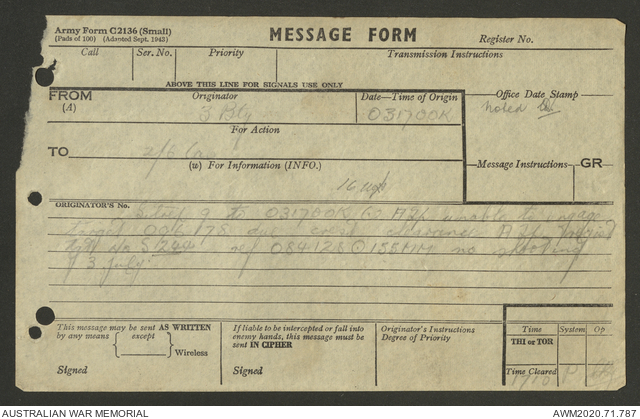 Army Form C2136 (Small)
(Pads of 100) (Adapted Sept. 1943)
MESSAGE FORM
Register No.
Call Ser. No. Priority Transmission Instructions
ABOVE THIS LINE FOR SIGNALS USE ONLY
FROM Originator Date—Time of Origin Office Date Stamp
(A) 3 Bty 031700K Noted
For Action
TO 2/6
(w) For Information (INFO.) Message Instructions GR
ORIGINATOR'S No.
Sitrep 9 to 031700K unable to engage
target 006178 due crest clearance
ref 084128 155MM no shooting
3 July
This message may be sent AS WRITTEN
by any means except Wireless
Signed
If liable to be intercepted or fall into
enemy hands, this message must be
sent IN CIPHER
Signed
Originator's Instructions
Degree of Priority
Time System Op
THI or TOR
Time Cleared
1710
AUSTRALIAN WAR MEMORIAL AWM2020.71.787